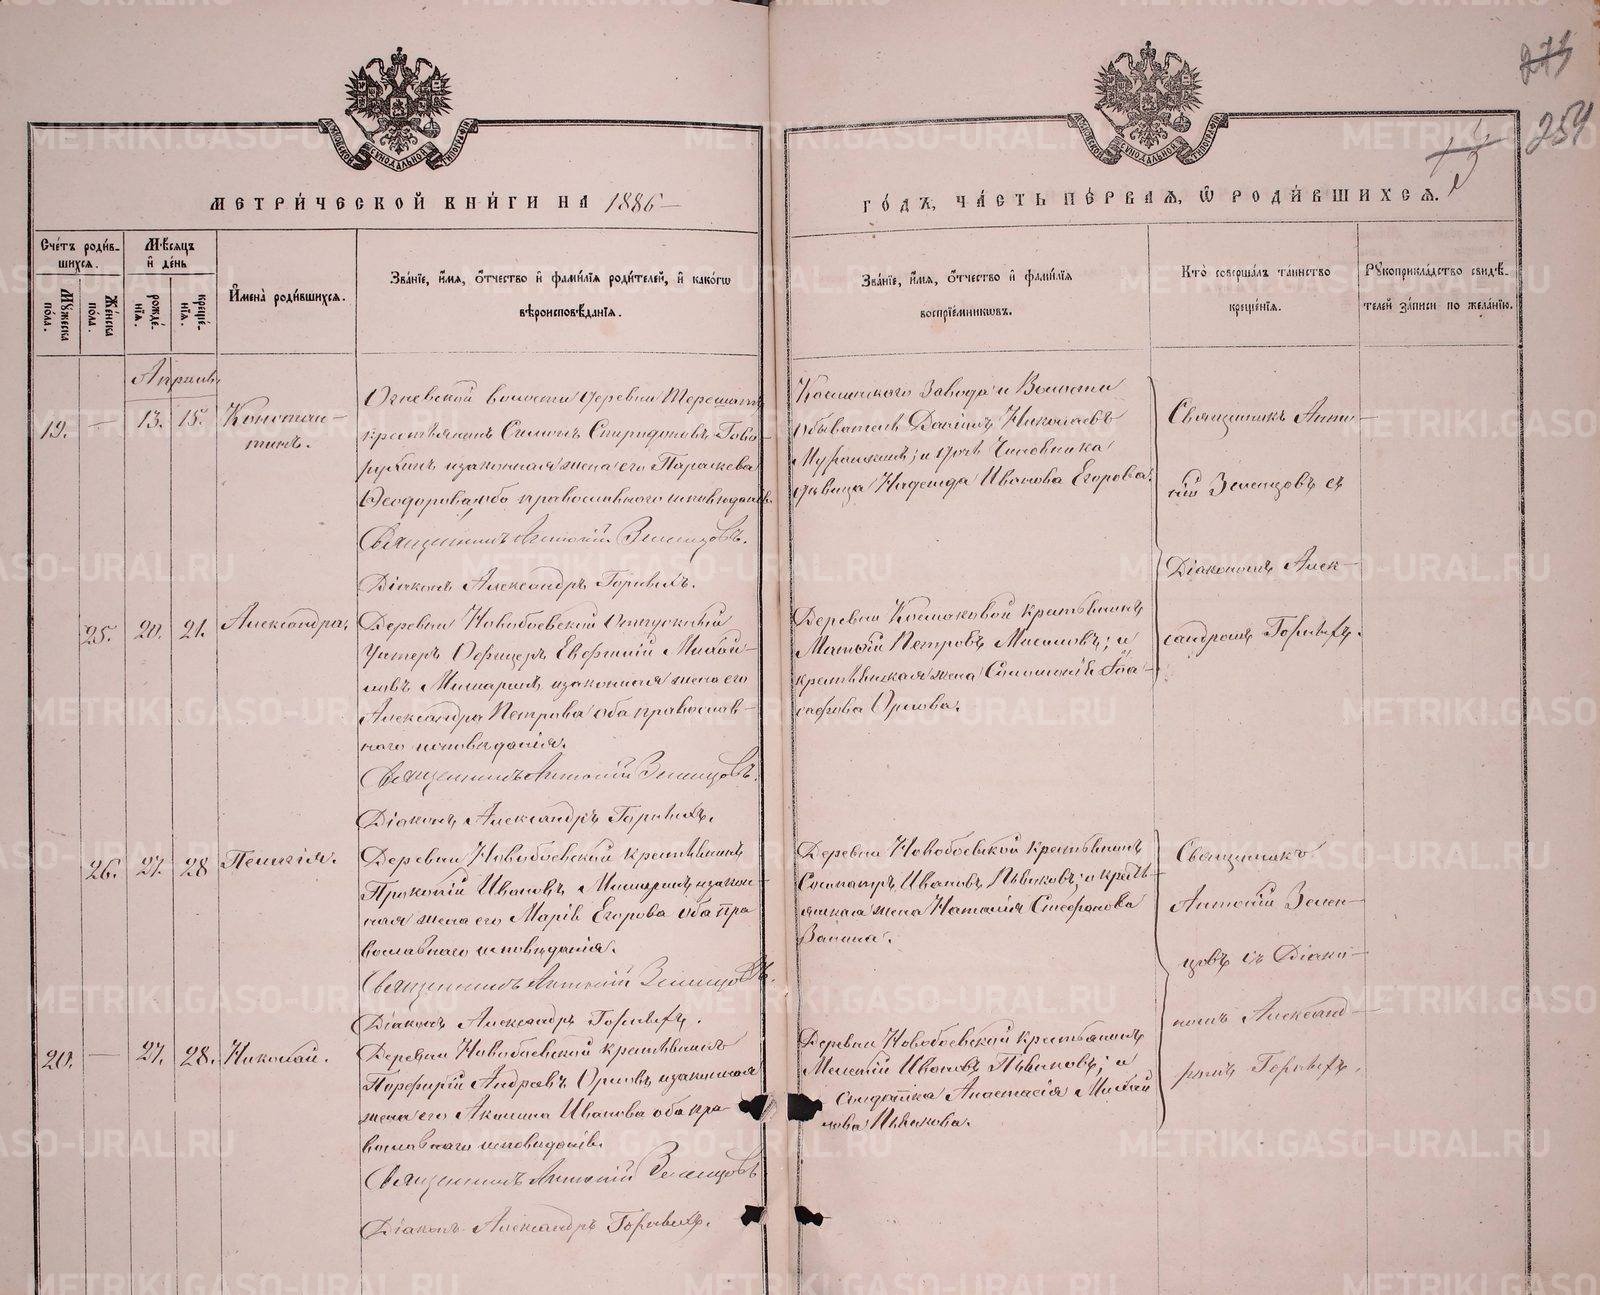 274
254
13
МЕТРИЧЕСКОЙ КНИГИ НА 1886
ГОДЪ, ЧАСТЬ ПЕРВАЯ, Ѡ РОДИВШИХСЯ.
Счетъ родившихся.
Мужеска пола.
Женска пола.
Мѣсяцъ и день
рожденія.
крещенія.
Имена родившихся.
Званіе, имя, отчество и фамилія родителей, и какогѡ
вѣроисповѣданія.
Званіе, имя, отчество и фамилія
воспріемникѡвъ.
Кто совершалъ таинство
крещенія.
Рукоприкладство свидѣ-
телей записи по желанію.
Апрѣль
19. — 13. 15. Констан-
тинъ.
Огневской волости деревни
крестьянинъ Симонъ Спиридоновъ Гово-
рухинъ и законная жена его Параскева
Ѳеодорова, оба православнаго исповѣданія.
Священникъ Антоній Зеленцовъ.
Діаконъ Александръ Горныхъ.
Каслинского Завода и Волости
обыватель Даніилъ Николаевъ
и дочь Чиновника
дѣвица Надежда Иванова Егорова.
Священникъ Анто-
ній Зеленцовъ съ
Діакономъ Алек-
сандромъ Горныхъ.
25. 20. 21. Александра.
Деревни Новобоевской Отпускный
Унтеръ Офицеръ Евфимій Михай-
ловъ Мишаринъ и законная жена его
Александра Петрова оба православ-
наго исповѣданія.
Священникъ Антоній Зеленцовъ.
Діаконъ Александръ Горныхъ.
Деревни крестьянинъ
Матѳій Петровъ и
крестьянская жена Соломонія Іоа-
сафова Орлова.
26. 27. 28 Пелагія.
Деревни Новобоевской крестьянинъ
Прокопій Ивановъ Мишаринъ и закон-
ная жена его Марія Егорова оба пра-
вославнаго исповѣданія.
Священникъ Антоній Зеленцовъ.
Діаконъ Александръ Горныхъ.
Деревни Новобоевской крестьянинъ
Ивановъ Пьянковъ; и кресть-
янская жена Наталія Стефанова
Ванина.
Священникъ
Антоній Зелен-
цовъ съ Діако-
номъ Александ-
ромъ Горныхъ.
20. — 27. 28. Николай.
Деревни Новобоевской крестьянинъ
Порфирій Андреевъ Орловъ и законная
жена его Акилина Иванова оба пра-
вославнаго исповѣданія.
Священникъ Антоній Зеленцовъ
Діаконъ Александръ Горныхъ.
Деревни Новобоевской крестьянинъ
Мелетій Ивановъ Пьянковъ; и
солдатка Анастасія Михай
лова Пьянкова.
METRIKI.GASO-URAL.RU